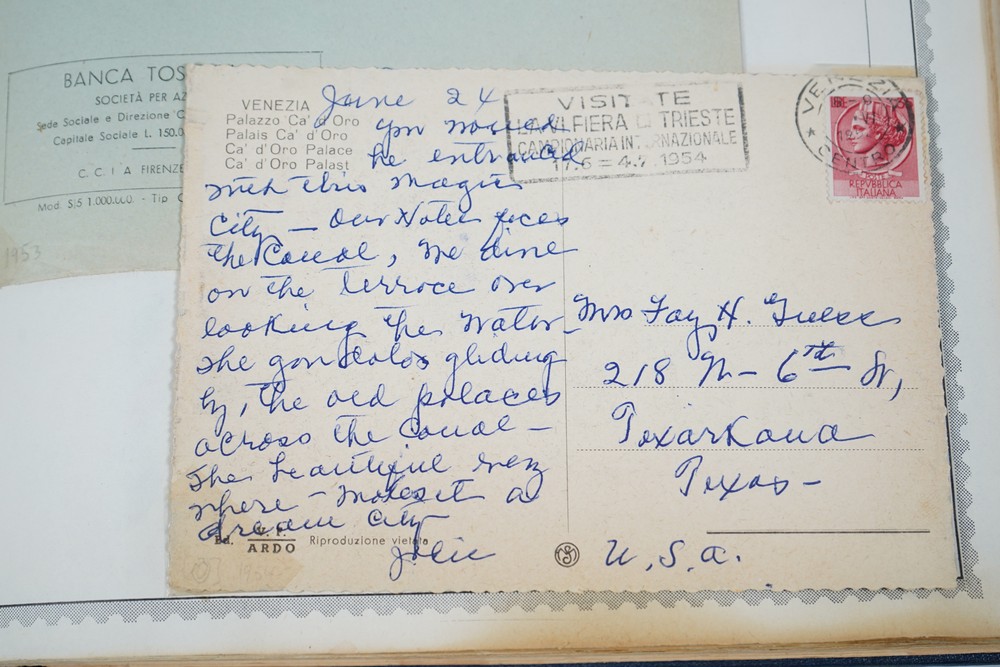 BANCA TOS
SOCIETÀ PER AZ
Sede Sociale e Direzione C
Capitale Sociale L. 150.0
C. C. I A FIRENZE
Mod. S/5 1.000.000. - Tip C
1953
VENEZIA
Palazzo Ca' d'Oro
Palais Ca' d'Oro
Ca' d'Oro Palace
Ca' d'Oro Palast
June 24
be entranced
with this magic
City — Our Hotel faces
the Canal, we dine
on the terrace over
looking the water
the gondolas gliding
by, the old palaces
across the Canal —
the beautiful every
where — makes it a
dream City
Jolie
Ed. V. F.
ARDO Riproduzione vietata
1954
VISITATE
LA VI FIERA DI TRIESTE
CAMPIONARIA INTERNAZIONALE
17.6 = 4.7. 1954
VENEZIA
CENTRO
POSTE
REPVBBLICA
ITALIANA
Mrs Fay H. Guess
218 W— 6th St,
Texarkana
Texas —
U.S.A.